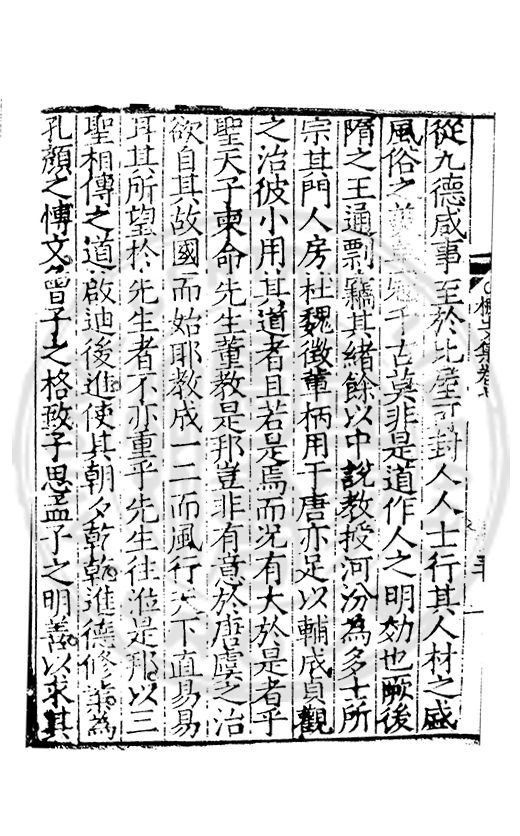 從九德咸事至於比屋可封人人士行其人材之盛
風俗之美冠千古莫非是道作人之明効也厥後
隋之王通剽竊其緒餘以中說教授河汾為多士所
宗其門人房杜魏徵輩柄用于唐亦足以輔成貞觀
之治彼小用其道者且若是焉而况有大於是者乎
聖天子柬命先生董教是邦豈非有意於唐虞之治
欲自其故國而始耶教成一二而風行天下直易易
耳其所望於先生者不亦重乎先生往涖是邦以三
聖相傳之道啟迪後進使其朝夕乾乾進德修業為
孔顏之博文曾子之格致子思孟子之明善以求其